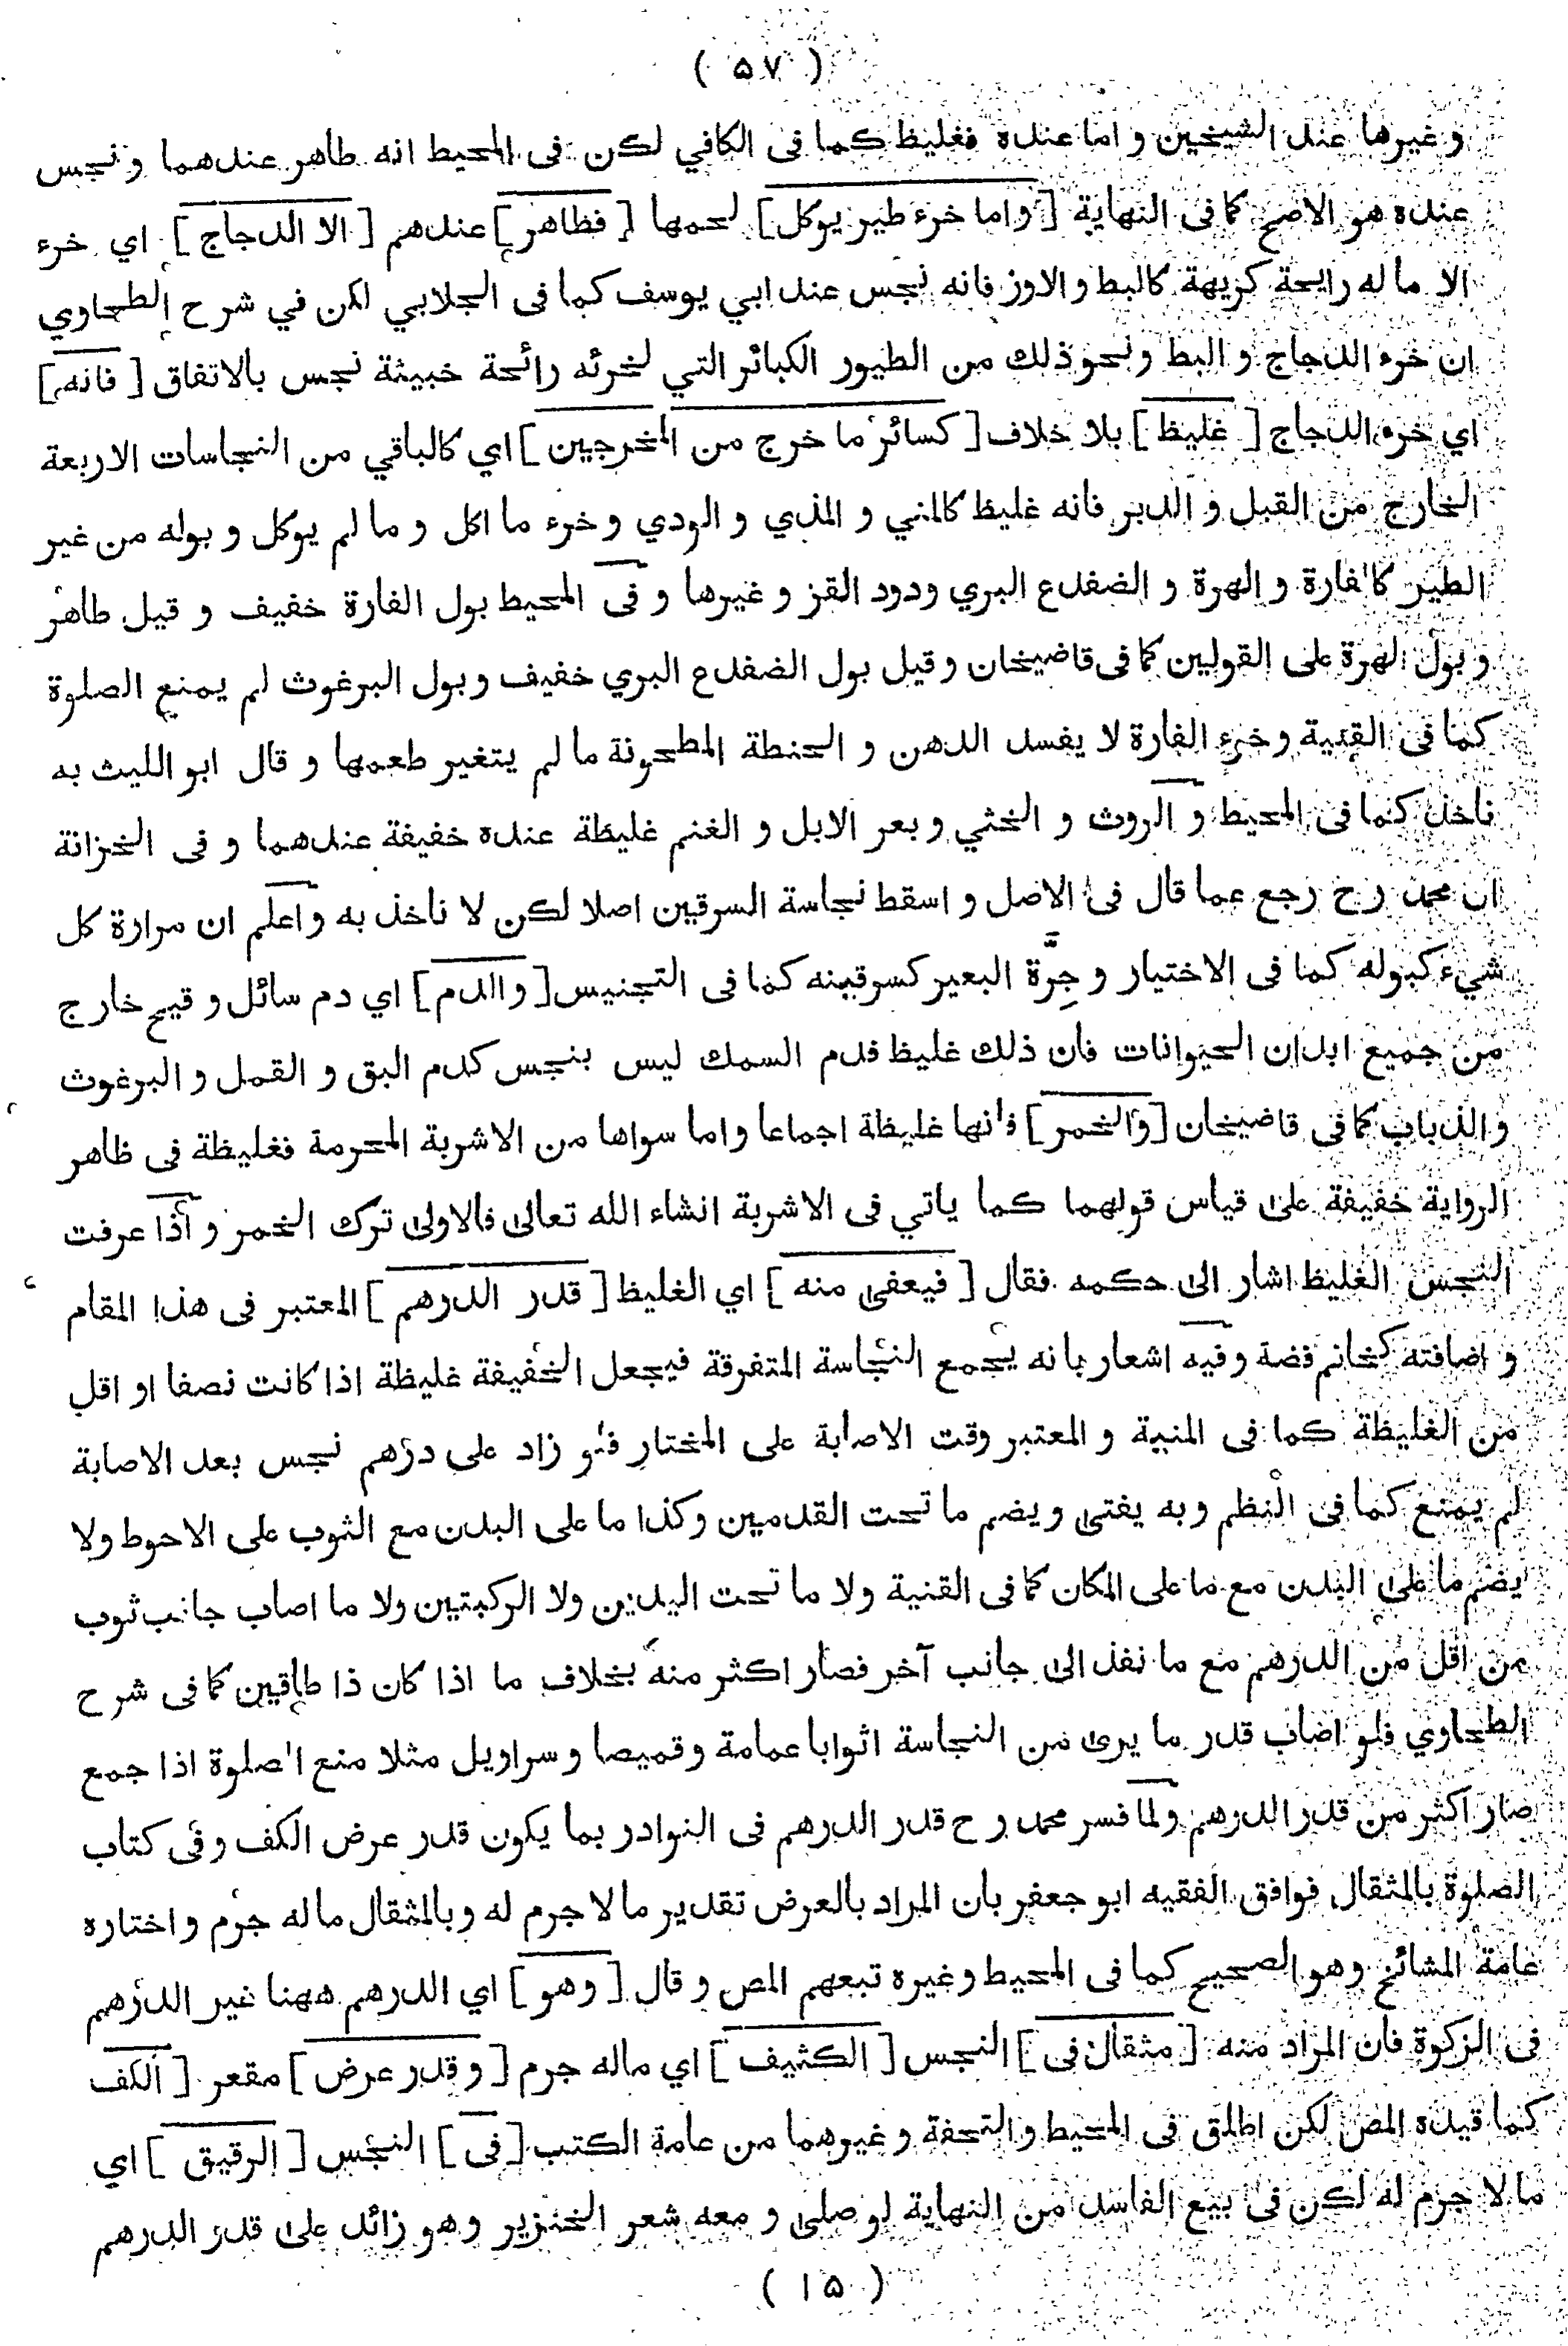 ( ٥٧ )
و غيرها عند الشيخين و اما عنده فغليظ كما فى الكافي لكن فى المحيط انه طاهر عندهما و نجس
عنده هو الاصح كما فى النهاية [ و اما خرء طير يوكل ] لحمها [ فطاهر ] عندهم [ الا الدجاج ] اي خرء
الا ما له رايحة كريهة كالبط و الاوز فانه نجس عند ابي يوسف كما فى الجلابي لكن في شرح الطحاوي
ان خرء الدجاج و البط و نحو ذلك من الطيور الكبائر التي لخرئه رائحة خبيثة نجس بالاتفاق [ فانه ]
اي خرء الدجاج [ غليظ ] بلا خلاف [ كسائر ما خرج من المخرجين ] اي كالباقي من النجاسات الاربعة
الخارج من القبل و الدبر فانه غليظ كالمني و المذي و الودي و خرء ما اكل و ما لم يوكل و بوله من غير
الطير كالفارة و الهرة و الضفدع البري ودود القز و غيرها و فى المحيط بول الفارة خفيف و قيل طاهر
و بول الهرة على القولين كما فى قاضيخان و قيل بول الضفدع البري خفيف و بول البرغوث لم يمنع الصلوة
كما فى القنية و خرء الفارة لا يفسد الدهن و الحنطة المطحونة ما لم يتغير طعمها و قال ابو الليث به
ناخذ كما فى المحيط و الروث و الخثي و بعر الابل و الغنم غليظة عنده خفيفة عندهما و فى الخزانة
ان محمد رح رجع عما قال فى الاصل و اسقط نجاسة السرقين اصلا لكن لا ناخذ به و اعلم ان مرارة كل
شيء كبوله كما فى الاختيار و جِرَّة البعير كسرقينه كما فى التجنيس [ و الدم ] اي دم سائل و قيح خارج
من جميع ابدان الحيوانات فان ذلك غليظ فدم السمك ليس بنجس كدم البق و القمل و البرغوث
و الذباب كما فى قاضيخان [ و الخمر ] فانها غليظة اجماعا و اما سواها من الاشربة المحرمة فغليظة فى ظاهر
الرواية خفيفة على قياس قولهما كما ياتي فى الاشربة انشاء الله تعالى فالاولى ترك الخمر و اذا عرفت
النجس الغليظ اشار الى حكمه فقال [ فيعفى منه ] اي الغليظ [ قدر الدرهم ] المعتبر فى هذا المقام
و اضافته كخاتم فضة و فيه اشعار بانه يجمع النجاسة المتفرقة فيجعل الخفيفة غليظة اذا كانت نصفا او اقل
من الغليظة كما فى المنية و المعتبر وقت الاصابة على المختار فلو زاد على درهم نجس بعد الاصابة
لم يمنع كما فى النظم و به يفتى و يضم ما تحت القدمين و كذا ما على البدن مع الثوب على الاحوط ولا
يضم ما على البدن مع ما على المكان كما فى القنية ولا ما تحت اليدين ولا الركبتين ولا ما اصاب جانب ثوب
من اقل من الدرهم مع ما نفذ الى جانب آخر فصار اكثر منه بخلاف ما اذا كان ذا طاقين كما فى شرح
الطحاوي فلو اصاب قدر ما يرى من النجاسة اثوابا عمامة و قميصا و سراويل مثلا منع الصلوة اذا جمع
صار اكثر من قدر الدرهم ولما فسر محمد رح قدر الدرهم فى النوادر بما يكون قدر عرض الكف و فى كتاب
الصلوة بالمثقال فوافق الفقيه ابو جعفر بان المراد بالعرض تقدير ما لا جرم له و بالمثقال ما له جرم و اختاره
عامة المشائخ و هو الصحيح كما فى المحيط و غيره تبعهم المص و قال [ و هو ] اي الدرهم ههنا غير الدرهم
فى الزكوة فان المراد منه [ مثقال فى ] النجس [ الكثيف ] اي ماله جرم [ و قدر عرض ] مقعر [ الكف
كما قيده المص لكن اطلق فى المحيط و التحفة و غيرهما من عامة الكتب [ فى ] النجس [ الرقيق ] اي
ما لا جرم له لكن فى بيع الفاسد من النهاية لو صلى و معه شعر الخنزير و هو زائد على قدر الدرهم
( ١٥ )